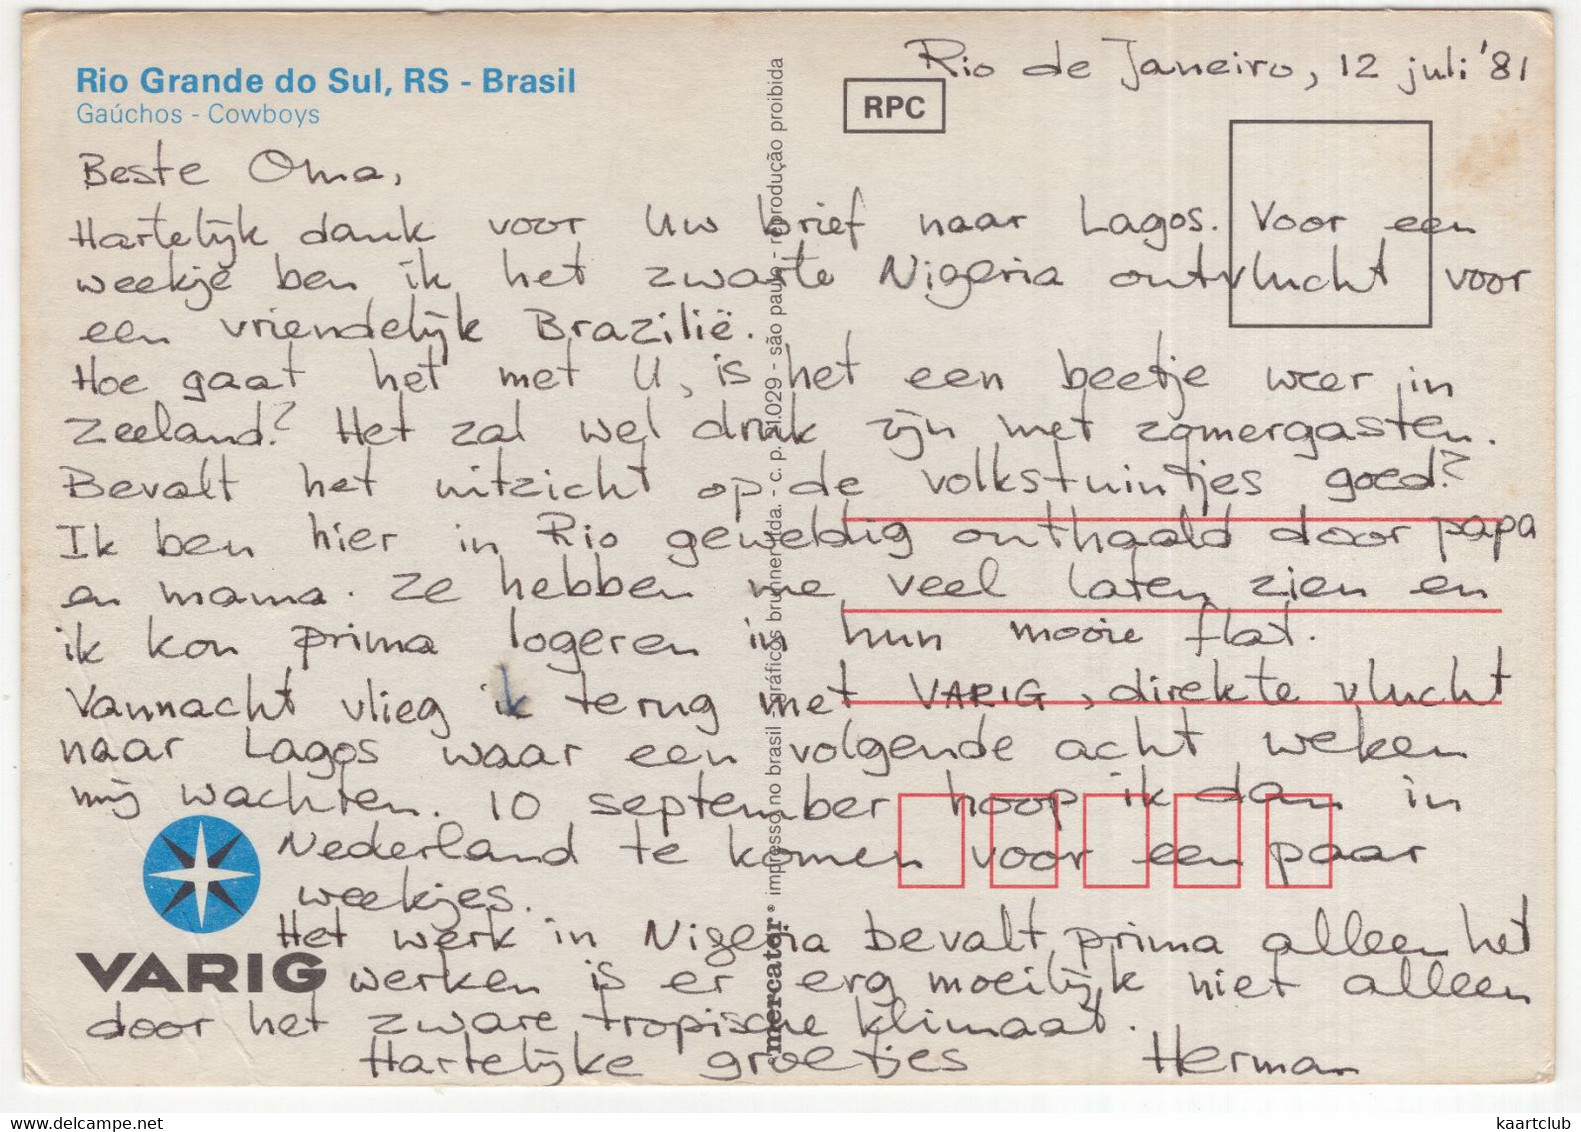 Rio de Janeiro, 12 juli '81
Rio Grande do Sul, RS - Brasil
Gaúchos - Cowboys
RPC
Beste Oma,
Hartelijk dank voor Uw brief naar Lagos. Voor een
weekje ben ik het zwarte Nigeria ontvlucht voor
een vriendelijk Brazilië.
Hoe gaat het met U, is het een beetje weer in
Zeeland? Het zal wel druk zijn met zomergasten.
Bevalt het uitzicht op de volkstuintjes goed?
Ik ben hier in Rio geweldig onthaald door papa
en mama. Ze hebben me veel laten zien en
ik kon prima logeren in hun mooie flat.
Vannacht vlieg ik terug met VARIG, direkte vlucht
naar Lagos waar een volgende acht weken
mij wachten. 10 september hoop ik dan in
Nederland te komen voor een paar
weekjes.
Het werk in Nigeria bevalt prima alleen het
werken is er erg moeilijk niet alleen
door het zware tropische klimaat.
Hartelijke groetjes Herman
VARIG
mercator impresso no brasil - gráficos brunner ltda. - c. p. 31.029 - são paulo - reprodução proibida
https://www.delcampe.net
kaartclub